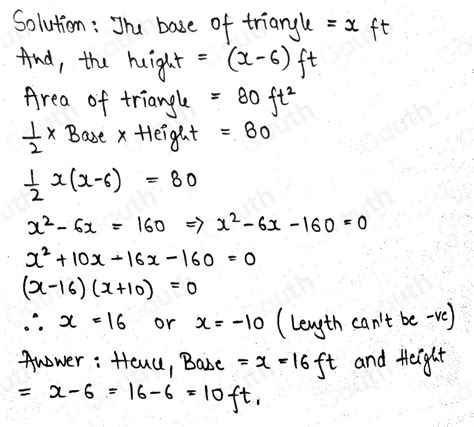 Solution: The base of triangle = x ft
And, the height = (x-6) ft
Area of triangle = 80 ft²
1/2 × Base × Height = 80
1/2 x(x-6) = 80
x² - 6x = 160 => x² - 6x - 160 = 0
x² + 10x - 16x - 160 = 0
(x-16) (x+10) = 0
∴ x = 16 or x = -10 (Length can't be -ve)
Answer: Hence, Base = x = 16 ft and Height
= x-6 = 16-6 = 10 ft.